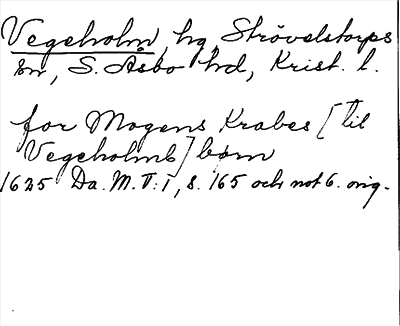 Vegeholm, hg, Strövelstorps
sn, S. Åsbo hd, Krist. l.
for Mogens Krabes [til
Vegeholms] børn
1625 Da. M. T: I, s. 165 och not 6. orig.